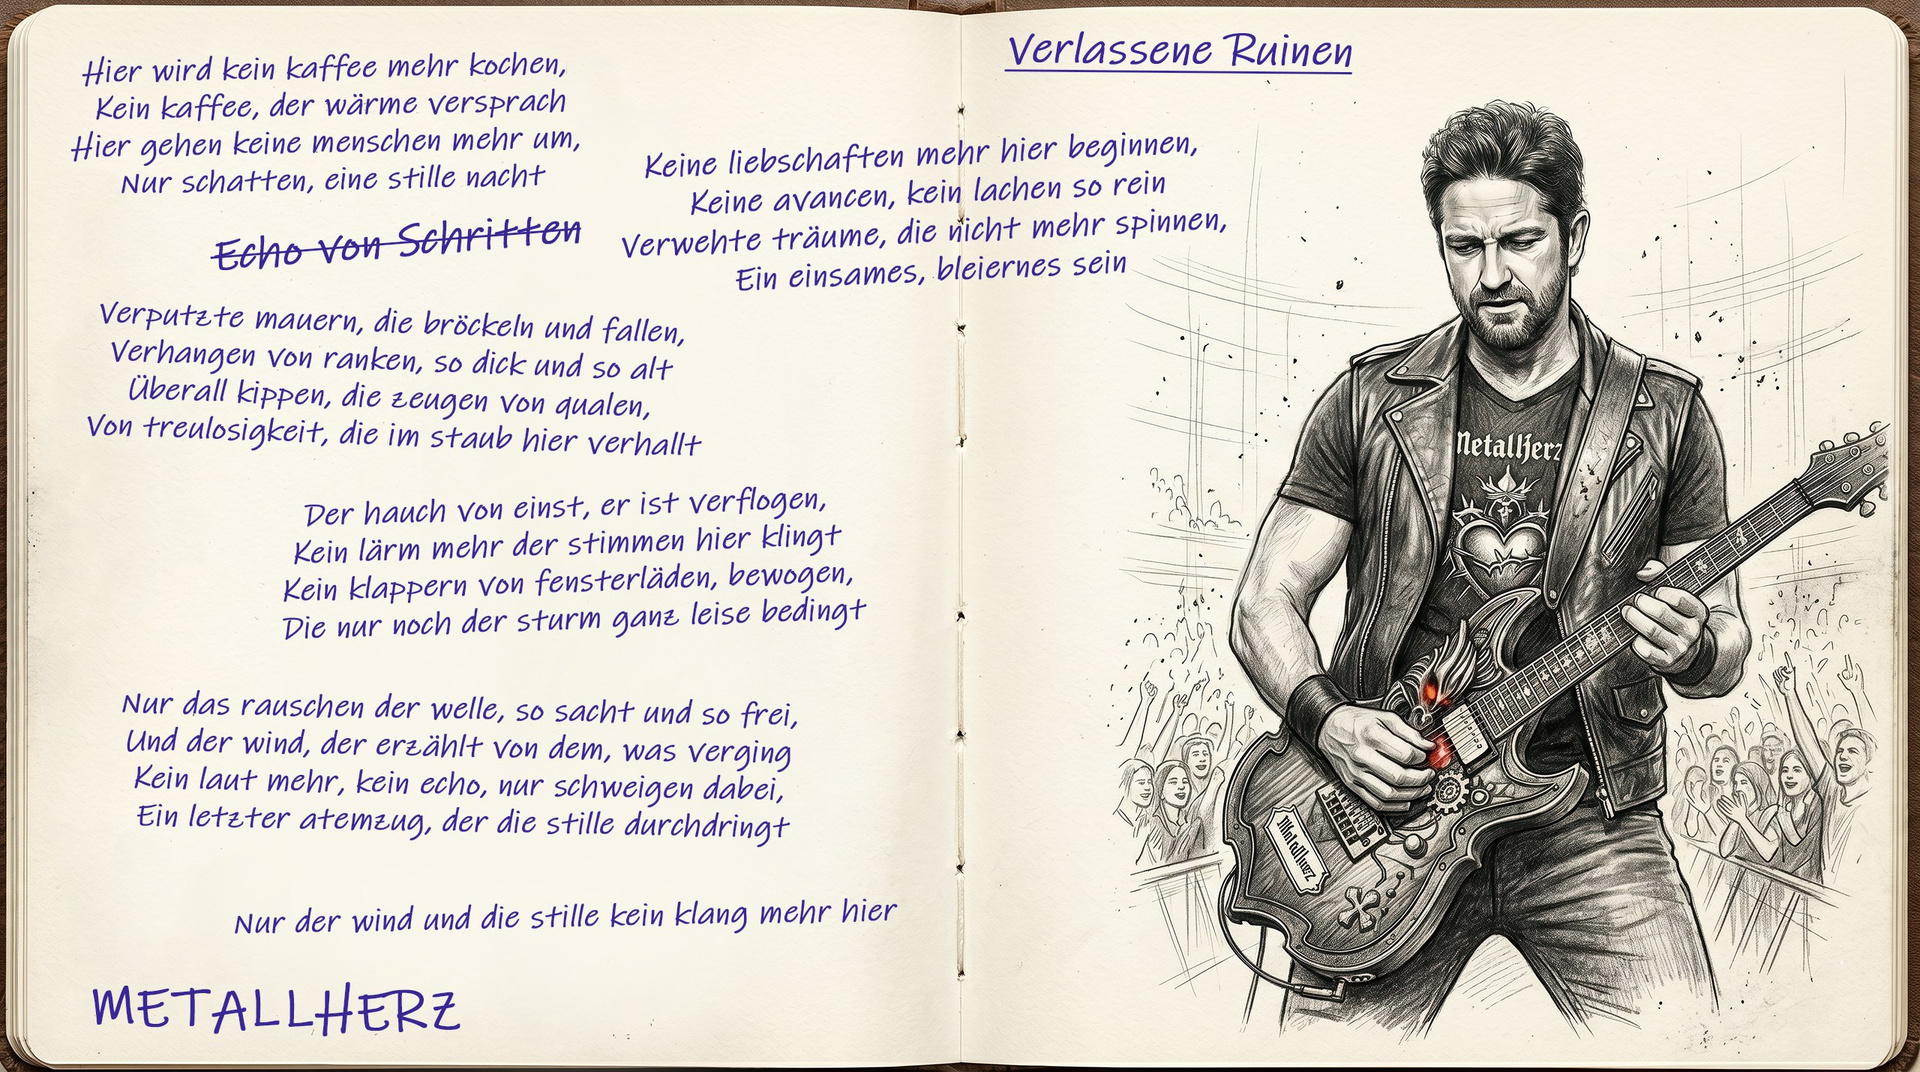 Verlassene Ruinen
Hier wird kein kaffee mehr kochen,
Kein kaffee, der wärme versprach
Hier gehen keine menschen mehr um,
Nur schatten, eine stille nacht
Echo von Schritten
Keine liebschaften mehr hier beginnen,
Keine avancen, kein lachen so rein
Verwehte träume, die nicht mehr spinnen,
Ein einsames, bleiernes sein
Verputzte mauern, die bröckeln und fallen,
Verhangen von ranken, so dick und so alt
Überall kippen, die zeugen von qualen,
Von treulosigkeit, die im staub hier verhallt
Der hauch von einst, er ist verflogen,
Kein lärm mehr der stimmen hier klingt
Kein klappern von fensterläden, bewogen,
Die nur noch der sturm ganz leise bedingt
Nur das rauschen der welle, so sacht und so frei,
Und der wind, der erzählt von dem, was verging
Kein laut mehr, kein echo, nur schweigen dabei,
Ein letzter atemzug, der die stille durchdringt
Nur der wind und die stille kein klang mehr hier
METALLHERZ
MetallHerz